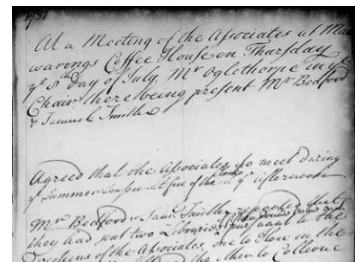 1731
At a Meeting of the Associates at Man
warings Coffee House on Thursday
ye 8th Day of July. Mr Oglethorpe in ye
Chair there being present Mr Bedford
& Samuel Smith
Agreed that the Associates do meet during
ye Summer Season at five of the Clock in ye afternoon
Mr Bedford & Saml Smith reported that
they had sent two Libraries
Trustees of the Associates, one to Hone in the
the other to